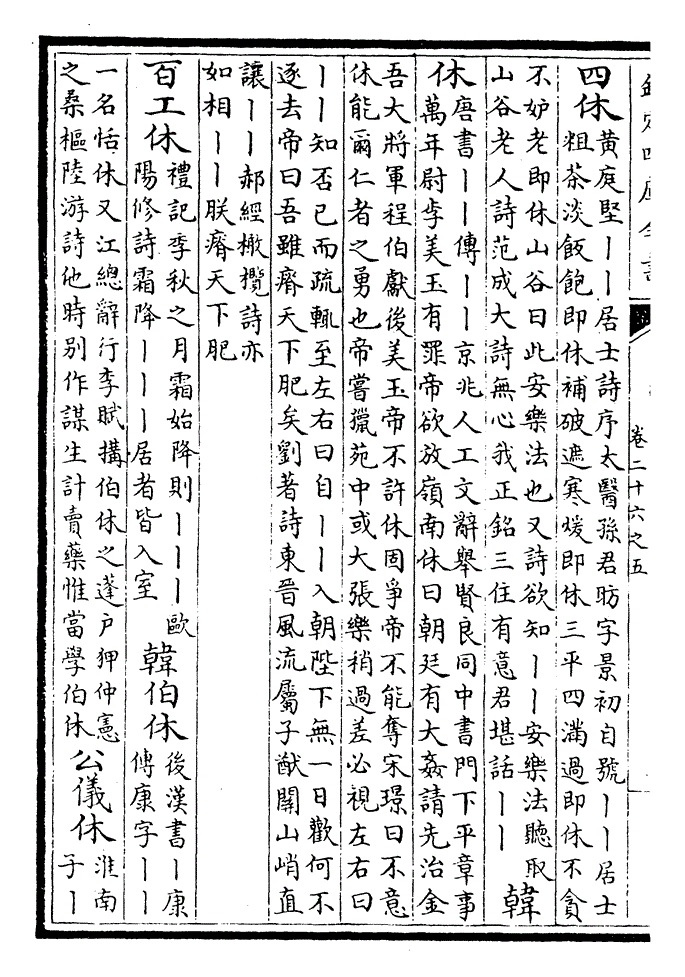 欽定四庫全書 卷二十六之五
四休
黃庭堅丨丨居士詩序太醫孫君昉字景初自號丨丨居士
粗茶淡飯飽即休補破遮寒煖即休三平四滿過即休不貪
不妒老即休山谷曰此安樂法也又詩欲知丨丨安樂法聽取
山谷老人詩范成大詩無心我正銘三住有意君堪話丨丨
韓
休
唐書丨丨傳丨丨京兆人工文辭舉賢良同中書門下平章事
萬年尉李美玉有罪帝欲放嶺南休曰朝廷有大姦請先治金
吾大將軍程伯獻後美玉帝不許休固爭帝不能奪宋璟曰不意
休能爾仁者之勇也帝嘗獵苑中或大張樂稍過差必視左右曰
丨丨知否已而疏輒至左右曰自丨丨入朝陛下無一日歡何不
逐去帝曰吾雖瘠天下肥矣劉著詩東晉風流屬子猷關山峭直
讓丨丨郝經橄欖詩亦
如相丨丨朕瘠天下肥
百工休
禮記季秋之月霜始降則丨丨丨歐
陽修詩霜降丨丨丨居者皆入室
韓伯休
後漢書丨康
傳康字丨丨
一名恬休又江總辭行李賦搆伯休之蓬戶狎仲憲
之桑樞陸游詩他時別作謀生計賣藥惟當學伯休
公儀休
淮南
子丨